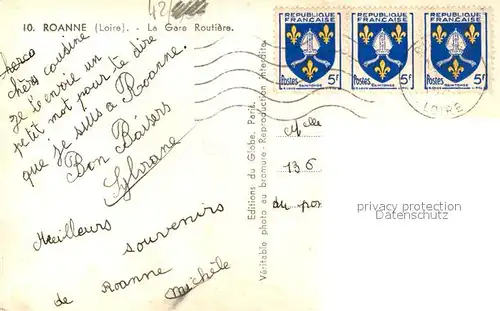 10. ROANNE (Loire). - La Gare Routière.
42
chère cousine
je t'envoie un
petit mot pour te dire
que je suis a Roanne.
Bon Baisers
Sylviane
Meilleurs
souvenirs
de Roanne
Michèle
Editions du Globe, Paris.
Véritable photo au bromure - Reproduction interdite.
REPUBLIQUE FRANÇAISE
Postes 5F
SAINTONGE
REPUBLIQUE FRANÇAISE
Postes 5F
SAINTONGE
REPUBLIQUE FRANÇAISE
Postes 5F
SAINTONGE
LOIRE
Melle
136
privacy protection
Datenschutz